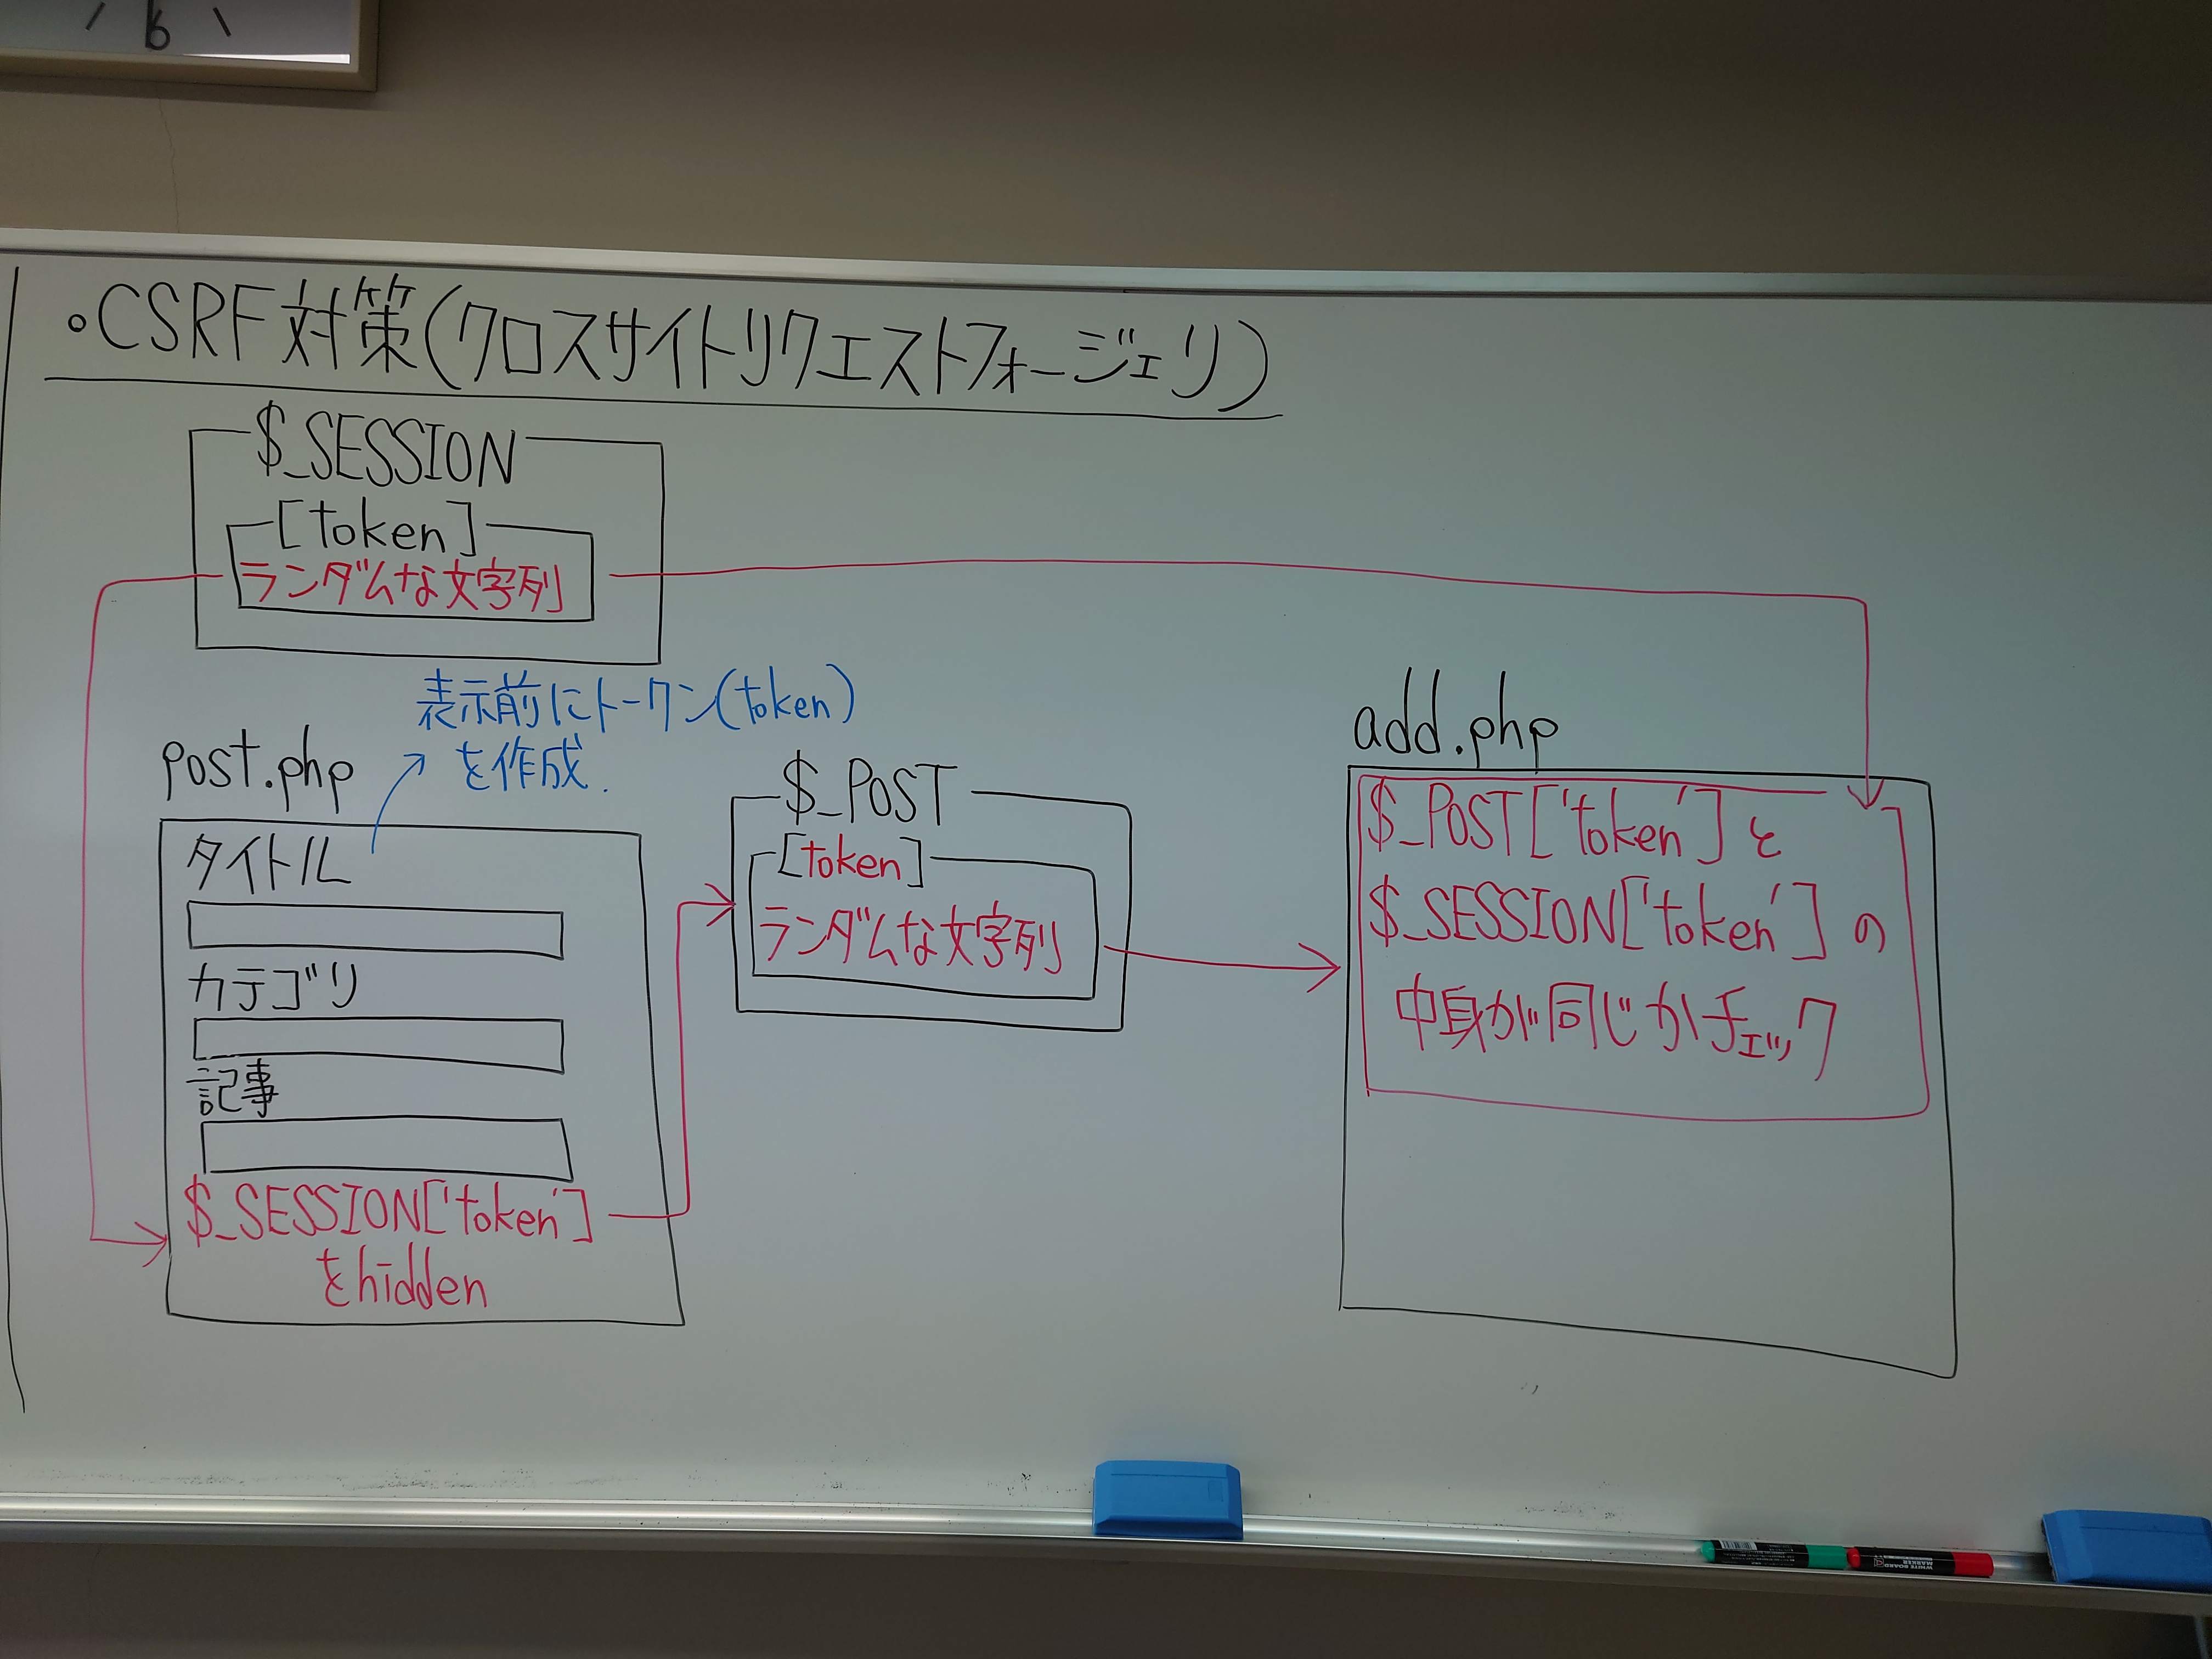 6
。CSRF対策(クロスサイトリクエストフォージェリ)
$_SESSION
[token]
ランダムな文字列
表示前にトークン(token)
を作成.
post.php
タイトル
カテゴリ
記事
$_SESSION['token']
をhidden
$_POST
[token]
ランダムな文字列
add.php
$_POST['token']と
$_SESSION['token']の
中身が同じかチェック
WHITE BOARD
MARKER